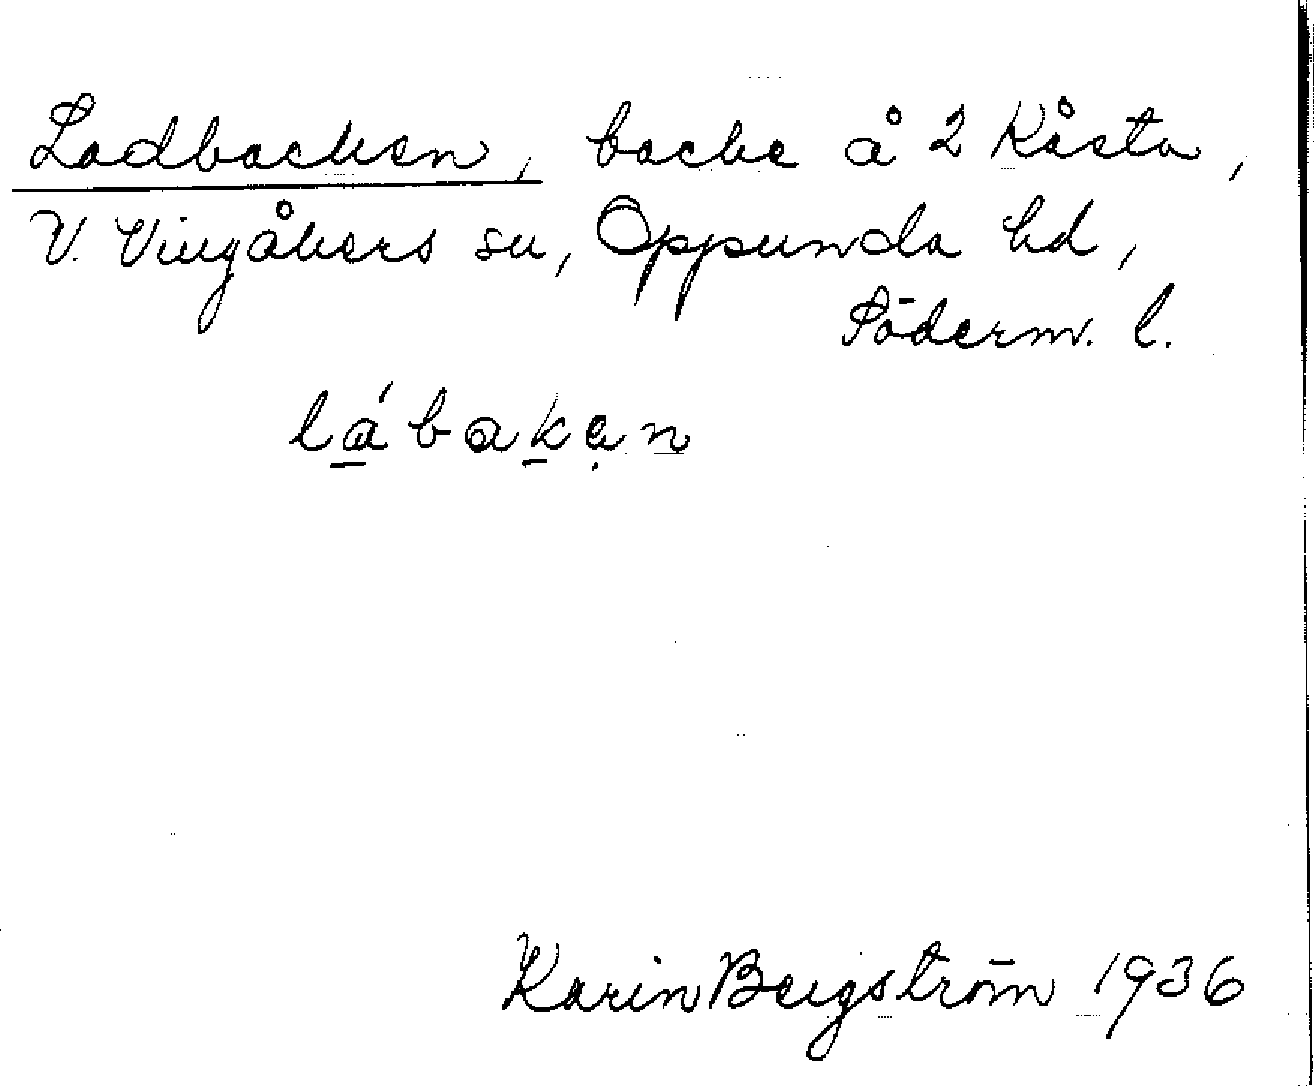 Ladbacken, backe å 2 Kåsta,
V. Vingåkers sn, Oppunda hd,
Söderm. l.
lábakęn
Karin Bergström 1936